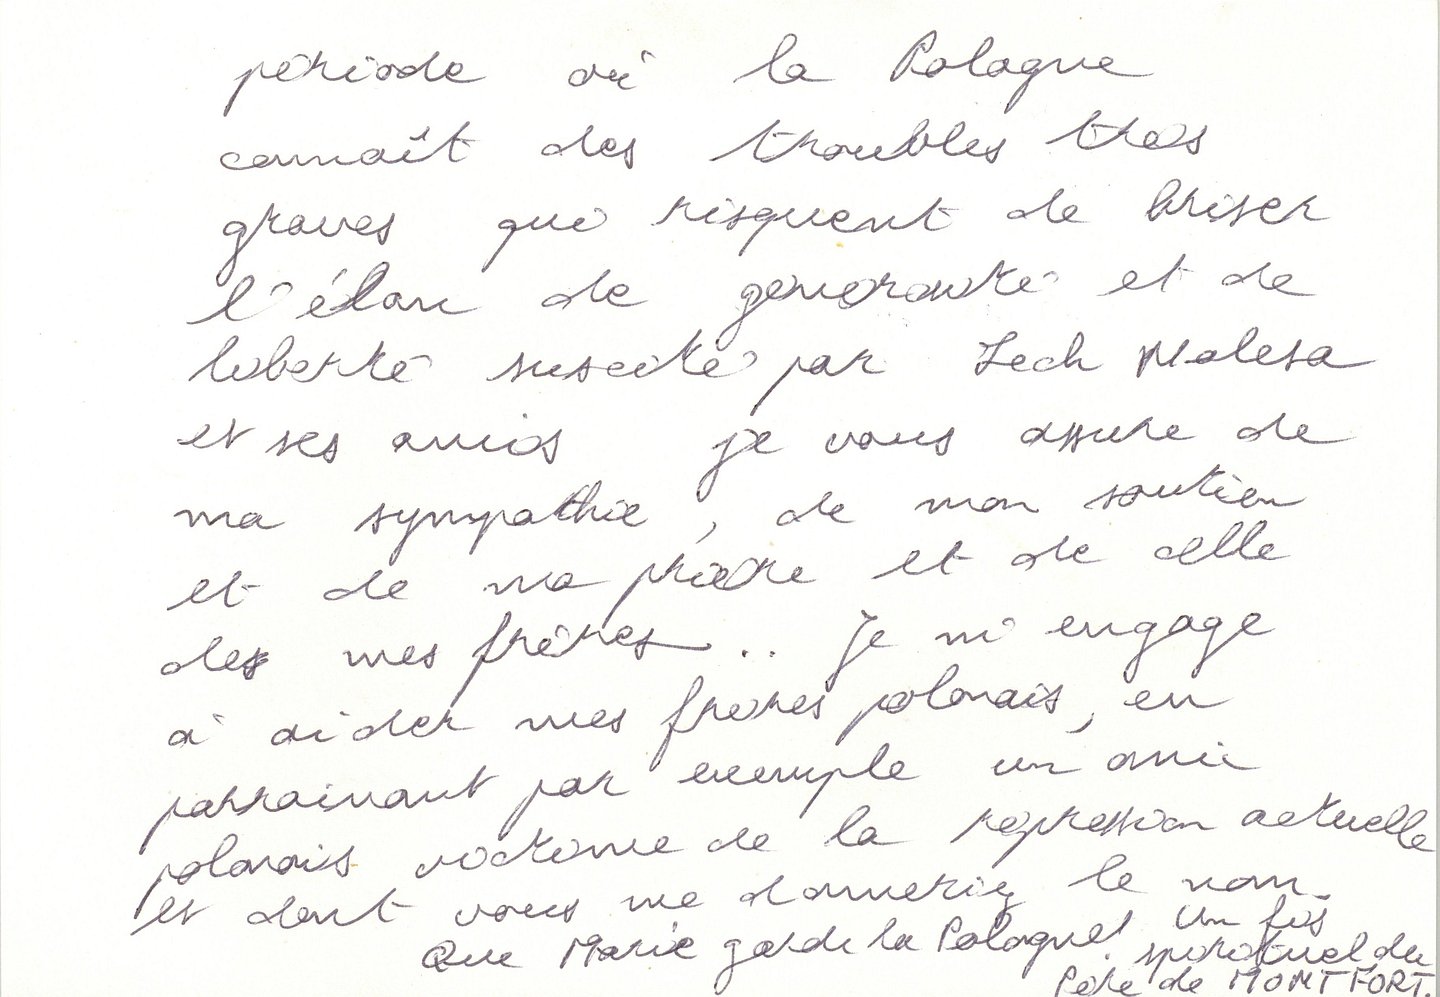 période où la Pologne
connaît des troubles très
graves qui risquent de briser
l'élan de générosité et de
liberté suscité par Lech Walesa
et ses amis je vous assure de
ma sympathie, de mon soutien
et de ma prière et de celle
des mes frères... Je m'engage
à aider mes frères polonais, en
parrainant par exemple un ami
polonais victime de la répression actuelle
et dont vous me donneriez le nom.
Que Marie garde la Pologne! Un fils
spirituel du
Père de MONTFORT.